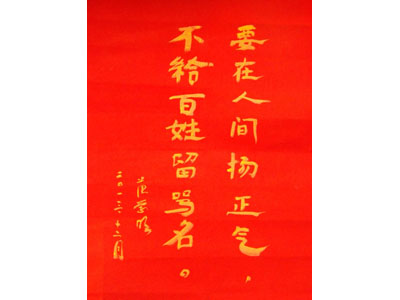 要在人间扬正气，
不给百姓留骂名。
二〇一三、十二月